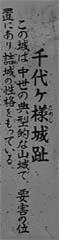 千代ヶ様城趾
ためし
この城は中世の典型的な山城で要害の位
置にあり詰城の性格をもっている。